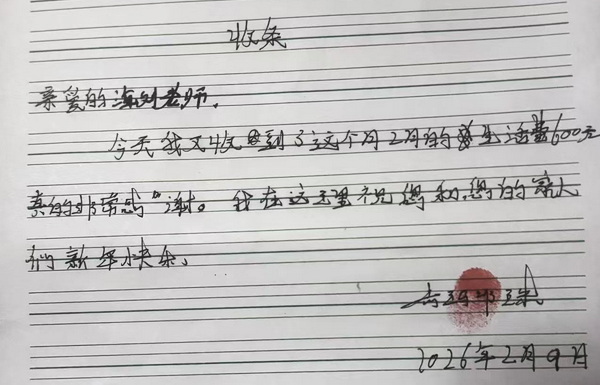 收条
亲爱的老师.
今天我又收到了这个月2月的生活费600元
真的非常感谢。我在这里祝您和您的家人
们新年快乐、
2026年2月9日